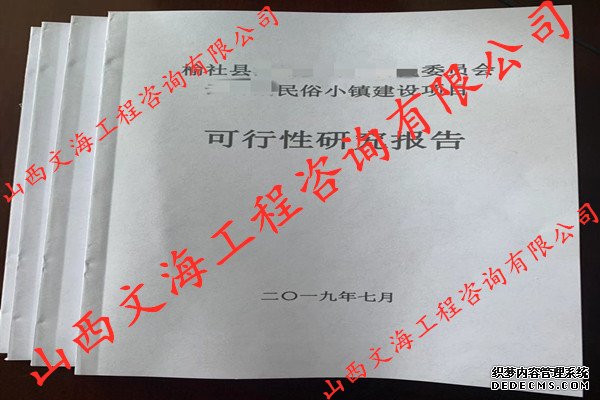 榆社县 委员会
民俗小镇建设项目
可行性研究报告
二〇一九年七月
山西文海工程咨询有限公司
山西文海工程咨询有限公司
山西文海工程咨询有限公司
织梦内容管理系统
DEDECMS.COM